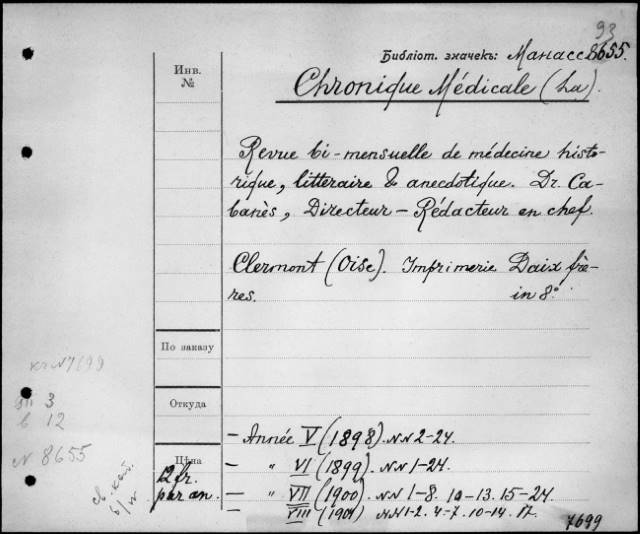 93
Библіот. значекъ: Манасс 8655.
Инв. №
Chronique Médicale (La).
Revue bi-mensuelle de médecine histo-
rique, littéraire & anecdotique. Dr. Ca-
banès, Directeur - Rédacteur en chef.
Clermont (Oise). Imprimerie Daix frè-
res. in 8°.
По заказу
кч N 7699
Откуда
III 3
в 12
N 8655
Цѣна
12 fr.
par an.
- Année V (1898). NN 2-24.
- " VI (1899). NN 1-24.
- " VII (1900). NN 1-8. 10-13. 15-24.
- VIII (1901) NN 1-2. 4-7. 10-14. 17.
7699